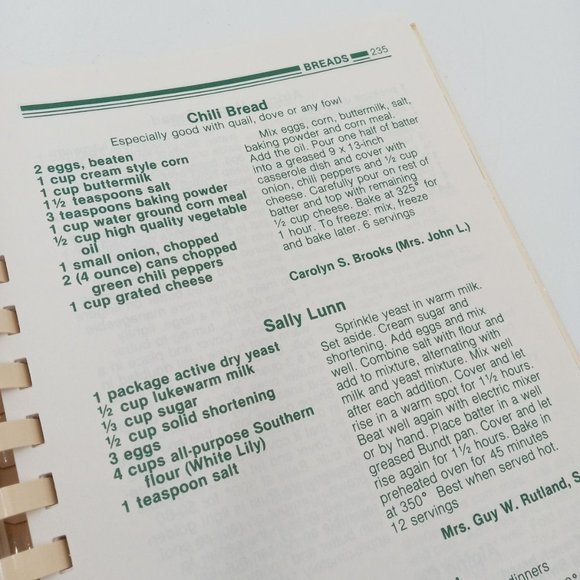 BREADS 235
Chili Bread
Especially good with quail, dove or any fowl
2 eggs, beaten
1 cup cream style corn
1 cup buttermilk
1½ teaspoons salt
3 teaspoons baking powder
1 cup water ground corn meal
½ cup high quality vegetable
oil
1 small onion, chopped
2 (4 ounce) cans chopped
green chili peppers
1 cup grated cheese
Mix eggs, corn, buttermilk, salt,
baking powder and corn meal.
Add the oil. Pour one half of batter
into a greased 9 x 13-inch
casserole dish and cover with
onion, chili peppers and ½ cup
cheese. Carefully pour on rest of
batter and top with remaining
½ cup cheese. Bake at 325° for
1 hour. To freeze: mix, freeze
and bake later. 6 servings
Carolyn S. Brooks (Mrs. John L.)
Sally Lunn
1 package active dry yeast
½ cup lukewarm milk
⅓ cup sugar
½ cup solid shortening
3 eggs
4 cups all-purpose Southern
flour (White Lily)
1 teaspoon salt
Sprinkle yeast in warm milk.
Set aside. Cream sugar and
shortening. Add eggs and mix
well. Combine salt with flour and
add to mixture, alternating with
milk and yeast mixture. Mix well
after each addition. Cover and let
rise in a warm spot for 1½ hours.
Beat well again with electric mixer
or by hand. Place batter in a well
greased Bundt pan. Cover and let
rise again for 1½ hours. Bake in
preheated oven for 45 minutes
at 350° Best when served hot.
12 servings
Mrs. Guy W. Rutland, S
dinners